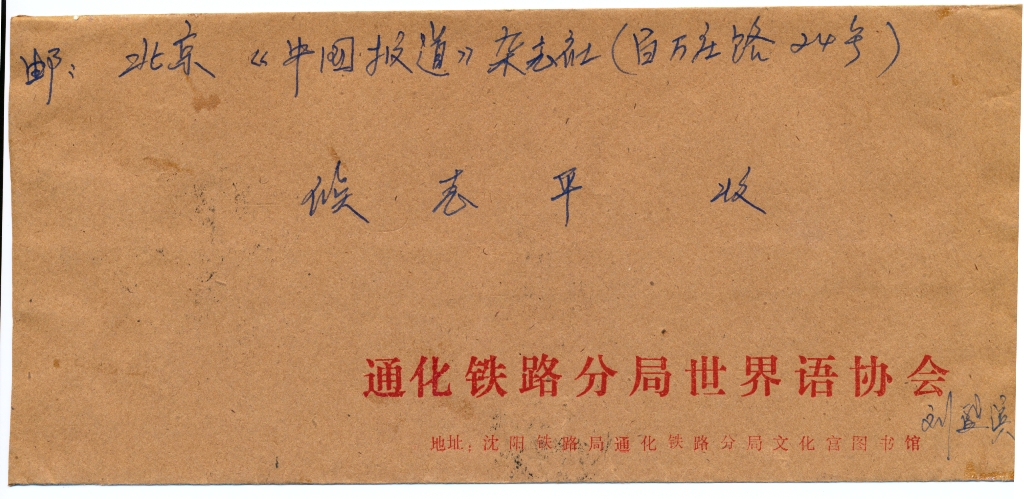 邮：北京《中国报道》杂志社（百万庄路24号）
侯志平 收
通化铁路分局世界语协会
刘
地址：沈阳铁路局通化铁路分局文化宫图书馆